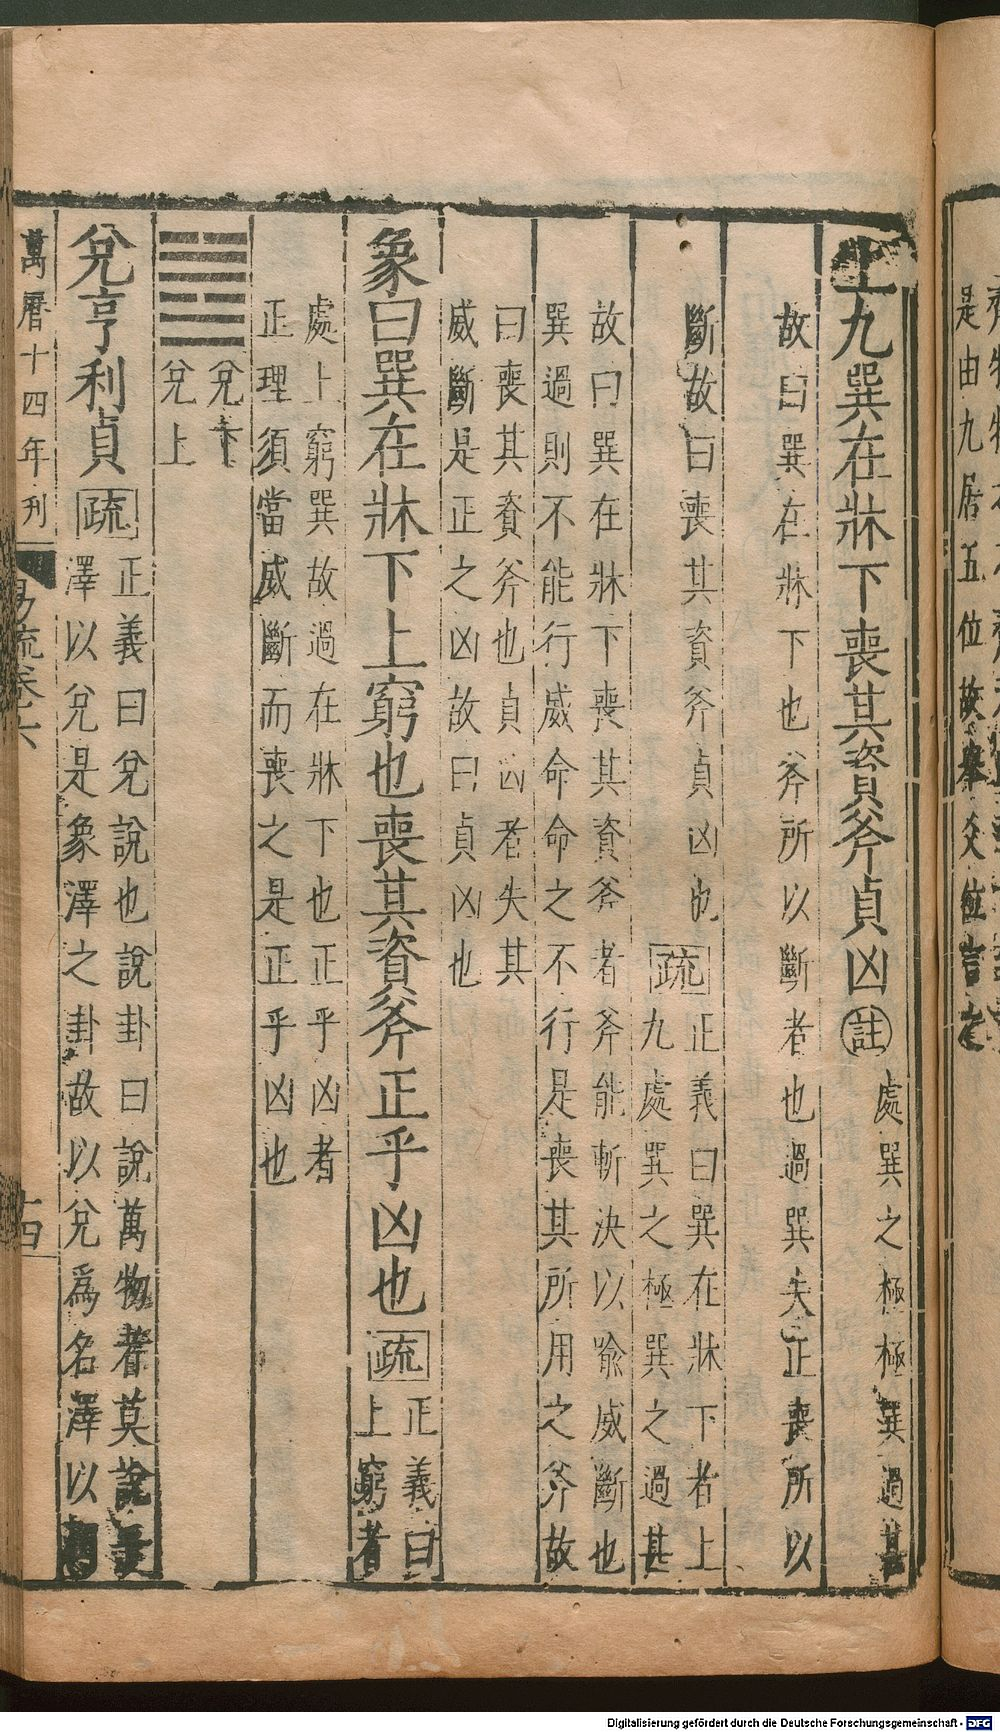 上九巽在牀下喪其資斧貞凶註處巽之極極巽過甚
故曰巽在牀下也斧所以斷者也過巽失正喪所以
斷故曰喪其資斧貞凶也疏正義曰巽在牀下者上
九處巽之極巽之過甚
故曰巽在牀下喪其資斧者斧能斬決以喩威斷也
巽過則不能行威命命之不行是喪其所用之斧故
曰喪其資斧也貞凶者失其
威斷是正之凶故曰貞凶也
象曰巽在牀下上窮也喪其資斧正乎凶也疏正義曰
上窮者
處上窮巽故過在牀下也正乎凶者
正理須當威斷而喪之是正乎凶也
兌下
兌上
兌亨利貞疏正義曰兌說也說卦曰說萬物者莫說
澤以兌是象澤之卦故以兌爲名澤以
萬曆十四年刊
易疏卷六
十四
是由九居五位故舉爻位言之
Digitalisierung gefördert durch die Deutsche Forschungsgemeinschaft - DFG